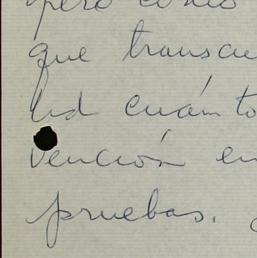 pero como
que transcu
Ud cuánto
vención en
pruebas.